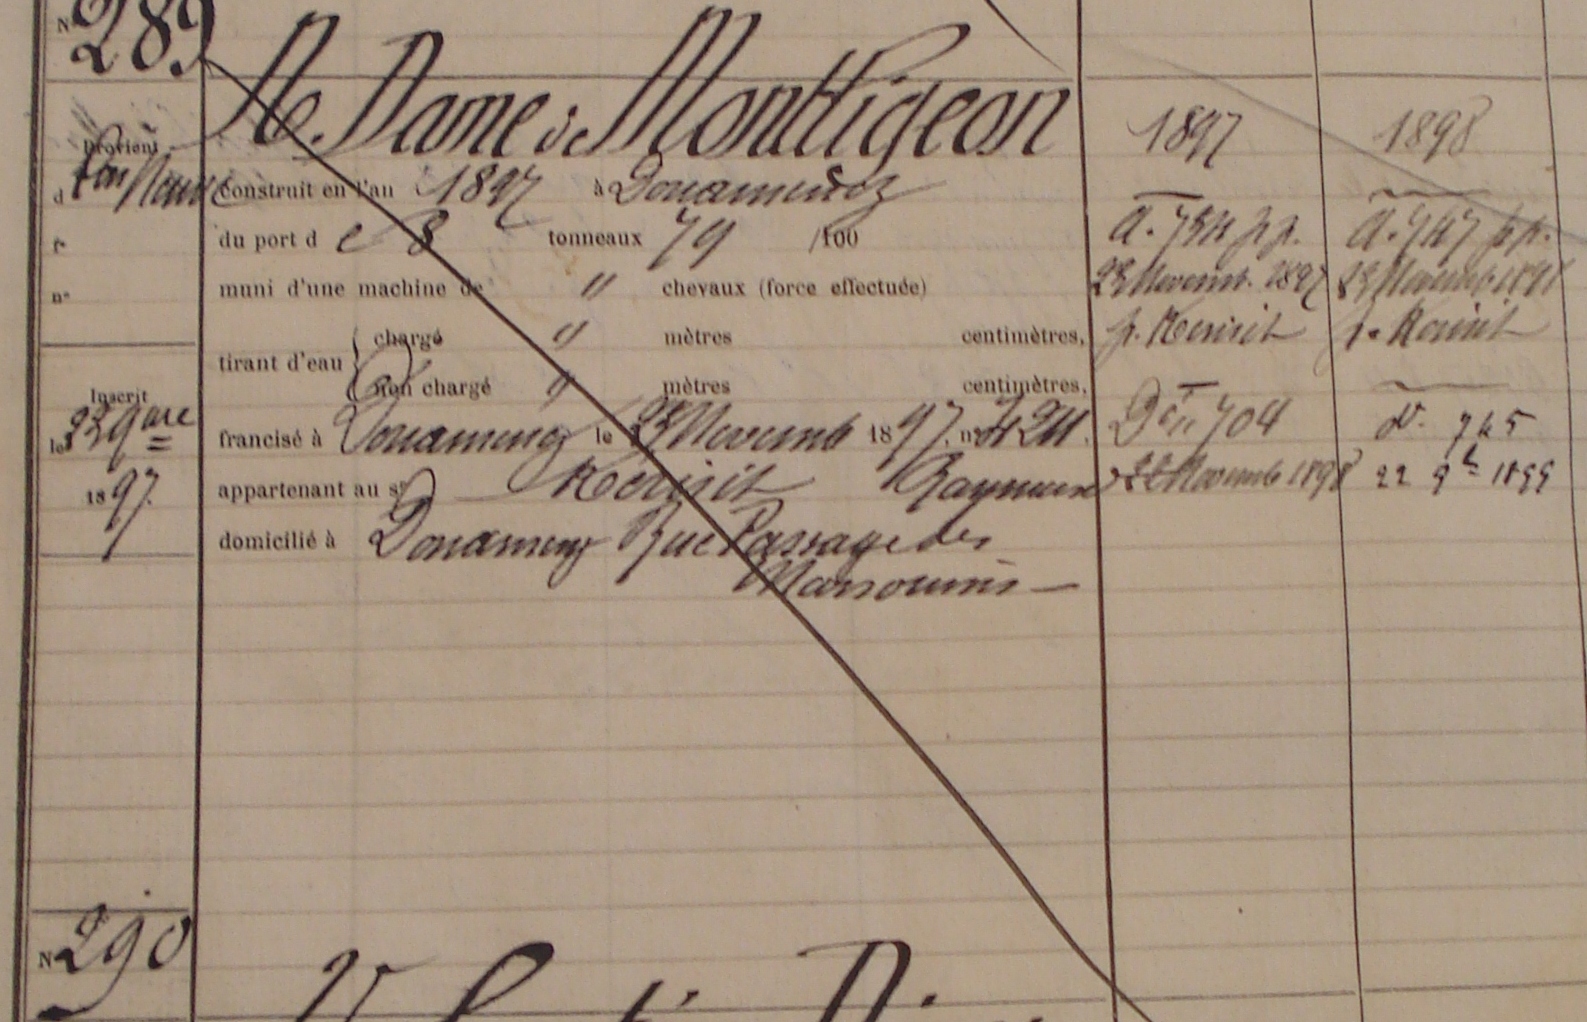 N° 289
N. Dame de Montligeon
1897
1898
Provient
d
f°
n°
Construit en l'an 1897 à Douarnenez
du port de 8 tonneaux 79 /100
muni d'une machine de " chevaux (force effectuée)
tirant d'eau
chargé " mètres centimètres,
non chargé " mètres centimètres,
Inscrit
le 23 9bre
1897
francisé à Douarnenez le 23 Novemb 1897, n° 424.
appartenant au sr Kerivit Raymond
domicilié à Douarnenez Rue Passage des
A. 734 pp.
23 Novemb. 1897
p. Kerivit
704
22 Novemb 1898
A. 747 pp.
23 Novemb 1898
p. Kerivit
d°. 765
22 9b 1899
N° 290